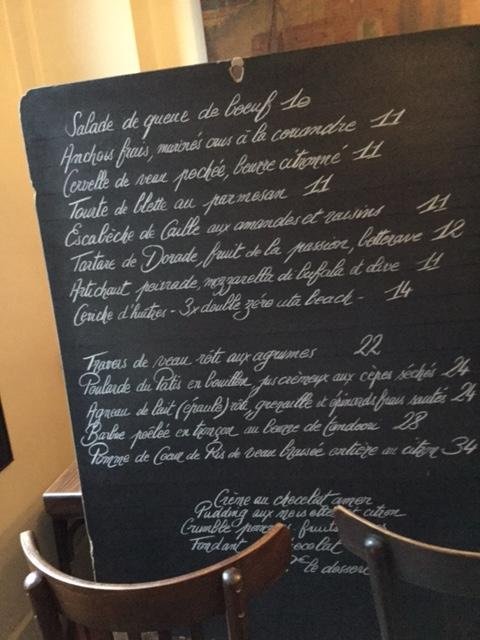 Salade de queue de boeuf 10
Anchois frais, marinés crus à la coriandre 11
Cervelle de veau pochée, beurre citronné 11
Tourte de blette au parmesan 11
Escabèche de Caille aux amandes et raisins 11
Tartare de Dorade, fruit de la passion, betterave 12
Artichaut poivrade, mozzarella di bufala et olive 11
Ceviche d'huîtres - 3x double zéro uta beach - 14
Travers de veau rôti aux agrumes 22
Poularde du Patis en bouillon, jus crèmeux aux cèpes séchés 24
Agneau de lait (épaule) rôti, grenaille et épinards frais sautés 24
Barbue poêlée en tronçon au beurre de 28
Pomme de Coeur de Ris de veau braisée entière au citron 34
Crème au chocolat amer
Pudding aux noisettes et citron
Crumble fruits
Fondant chocolat
le dessert